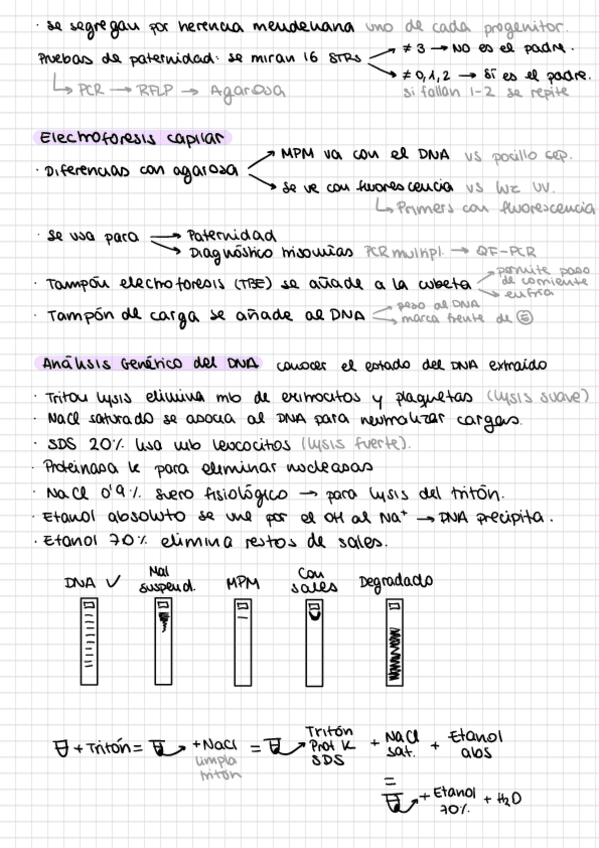 · se segregan por herencia mendeliana uno de cada progenitor.
Pruebas de paternidad: se miran 16 STRs → ≠ 3 → NO es el padre.
→ ≠ 0,1,2 → SÍ es el padre.
si fallan 1-2 se repite
↳ PCR → RFLP → Agarosa
Electroforesis capilar
· Diferencias con agarosa → MPM va con el DNA vs pocillo sep.
→ se ve con fluorescencia vs luz UV.
↳ Primers con fluorescencia
· se usa para → Paternidad
→ Diagnóstico trisomías PCR multipl. → QF-PCR
· Tampón electroforesis (TBE) se añade a la cubeta → permite paso de corriente
→ enfría
· Tampón de carga se añade al DNA → peso al DNA
→ marca frente de Ⓔ
Análisis Genético del DNA conocer el estado del DNA extraído
· Triton lysis elimina mb de eritrocitos y plaquetas (lysis suave)
· NaCl saturado se asocia al DNA para neutralizar cargas.
· SDS 20% lisa mb leucocitos (lysis fuerte).
· Proteinasa k para eliminar nucleasas
· NaCl 0'9% suero fisiológico → para lysis del tritón.
· Etanol absoluto se une por el OH al Na⁺ → DNA precipita.
· Etanol 70% elimina restos de sales.
DNA ✓ Mal suspend. MPM Con sales Degradado
+ Tritón = + NaCl = Tritón Prot K SDS + NaCl sat. + Etanol abs
limpia tritón
=
+ Etanol 70% + H₂O